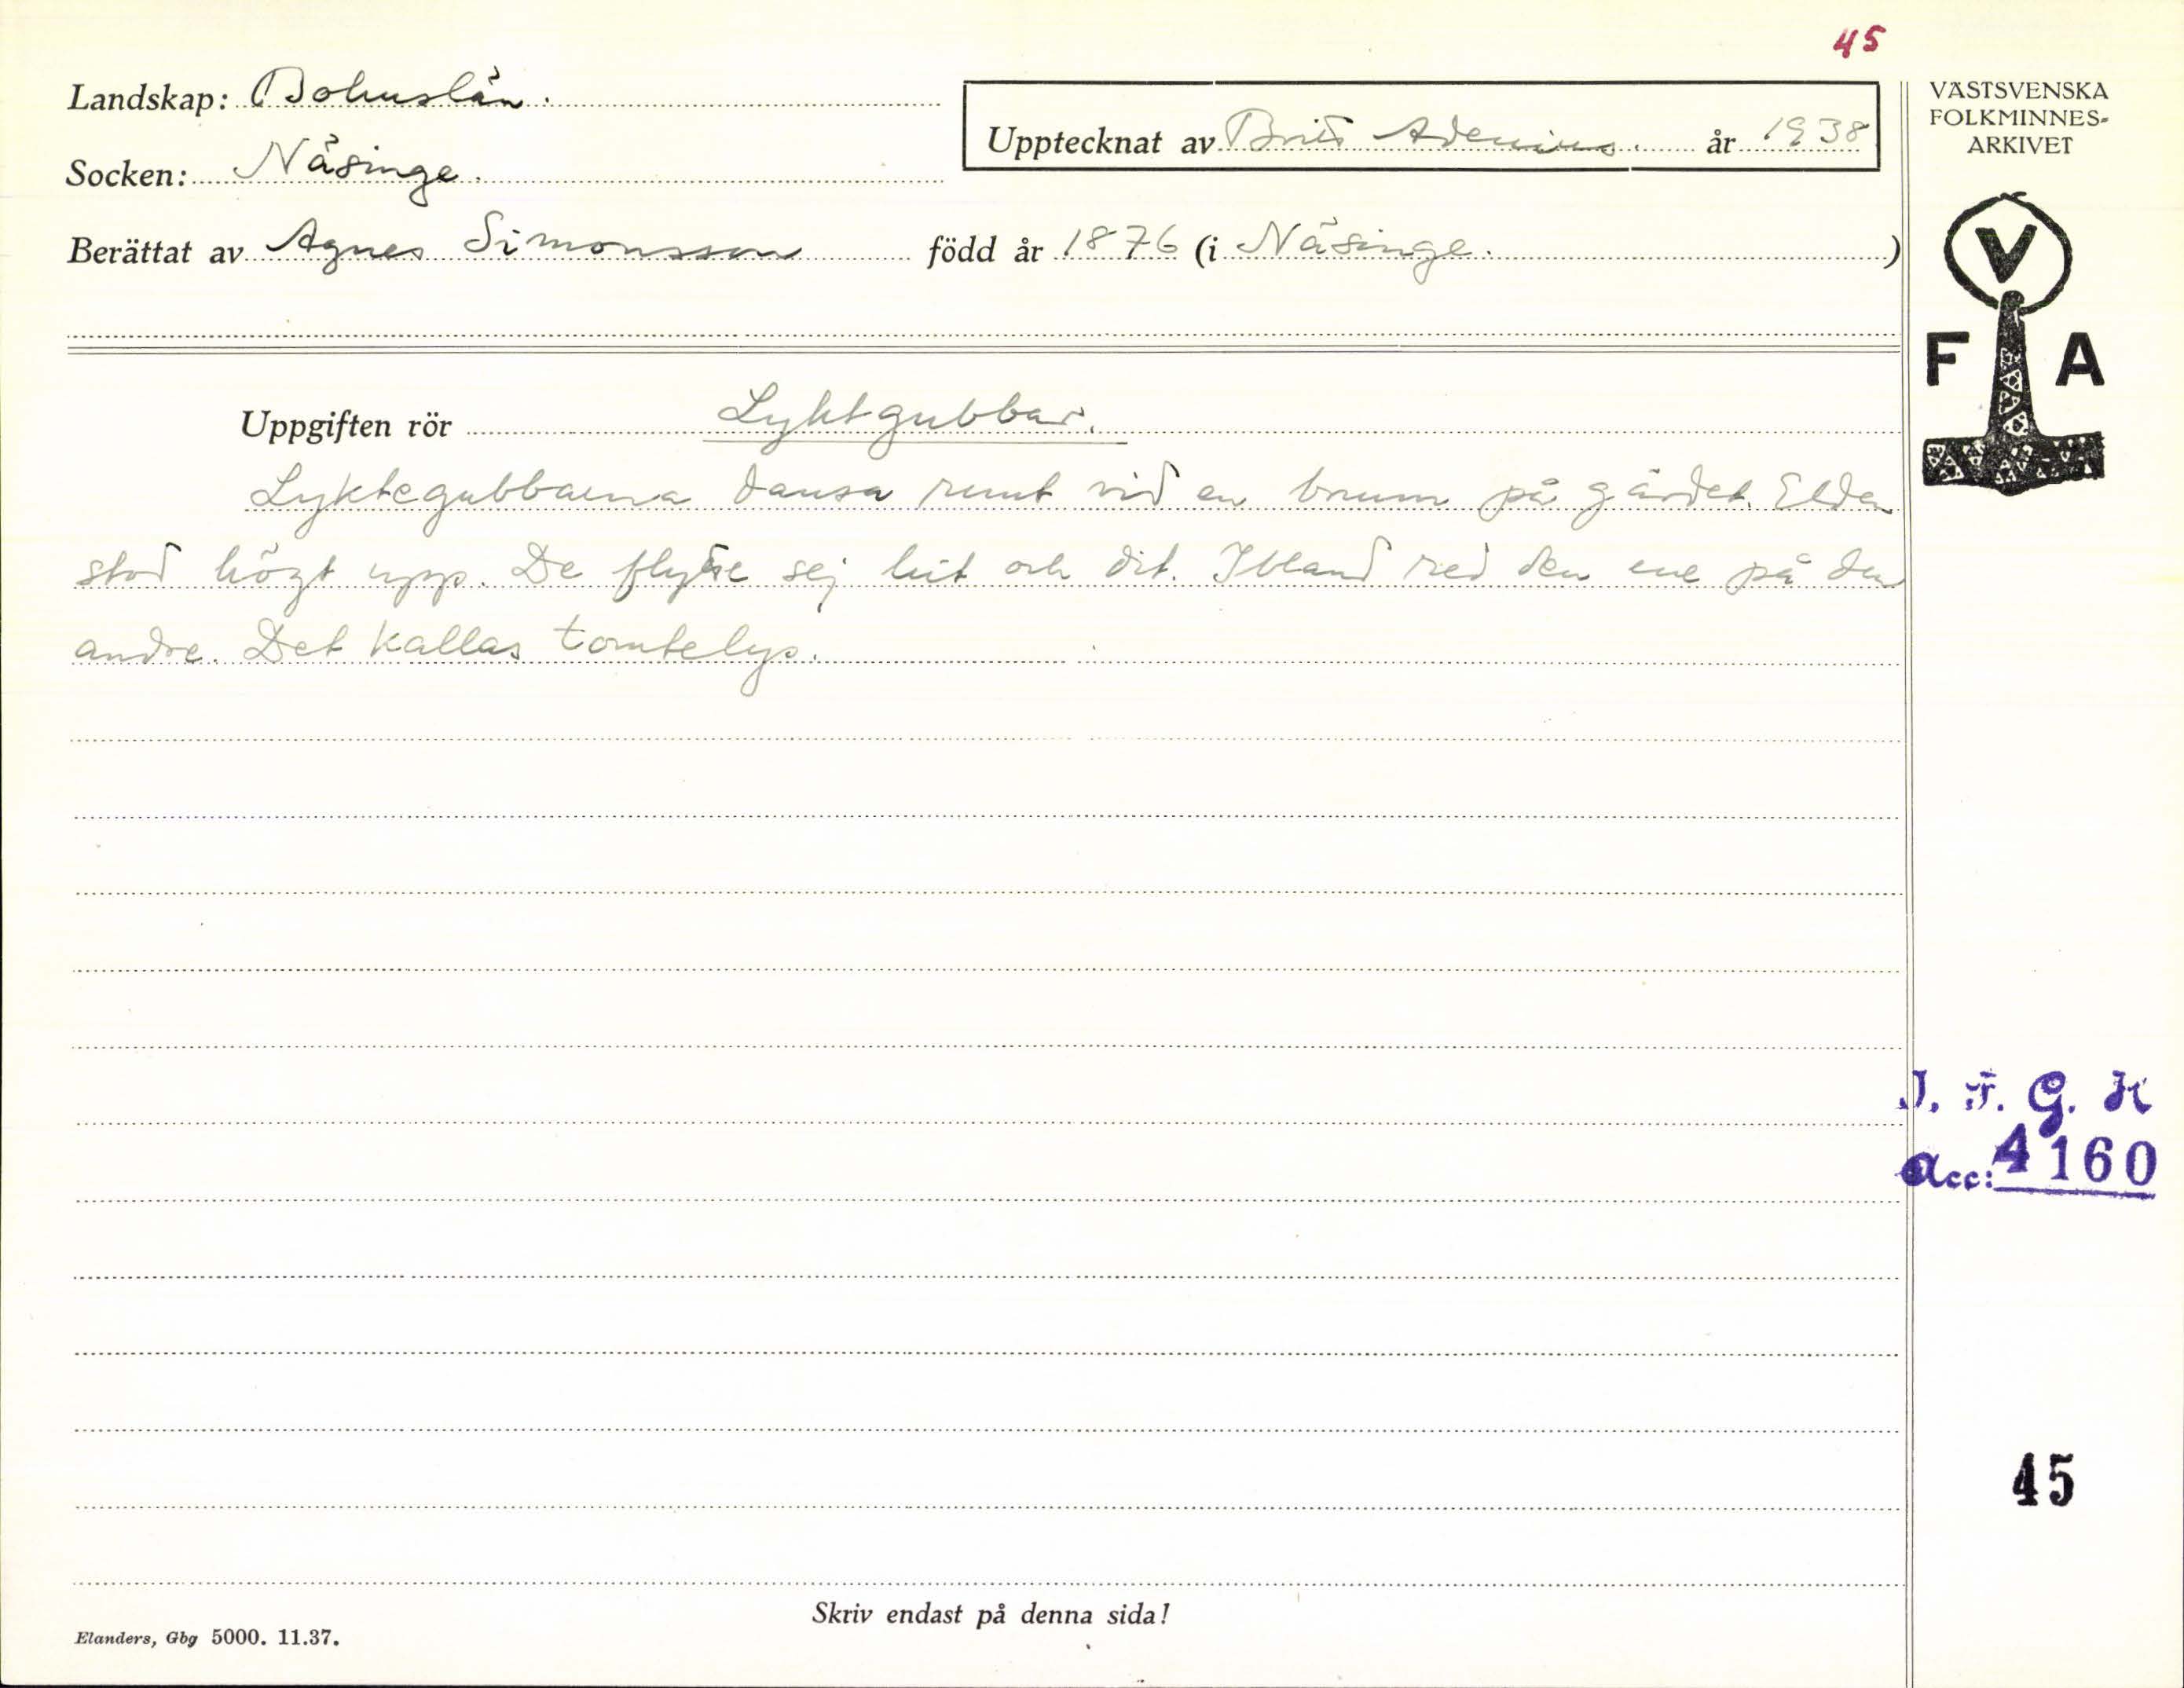 45
Landskap: Bohuslän.
Upptecknat av Brita Adenius. år 1938
VÄSTSVENSKA
FOLKMINNES-
ARKIVET
Socken: Näsinge.
Berättat av Agnes Simonsson född år 1876 (i Näsinge. )
V
F A
Uppgiften rör Lyktgubbar.
Lyktegubbarna dansa runt vid en brunn på gärdet. Elden
stod högt upp. De flytte sej hit och dit. Ibland red den ene på den
andre. Det kallas tomtelys.
I. F. G. H
Acc: 4160
45
Skriv endast på denna sida!
Elanders, Gbg 5000. 11.37.